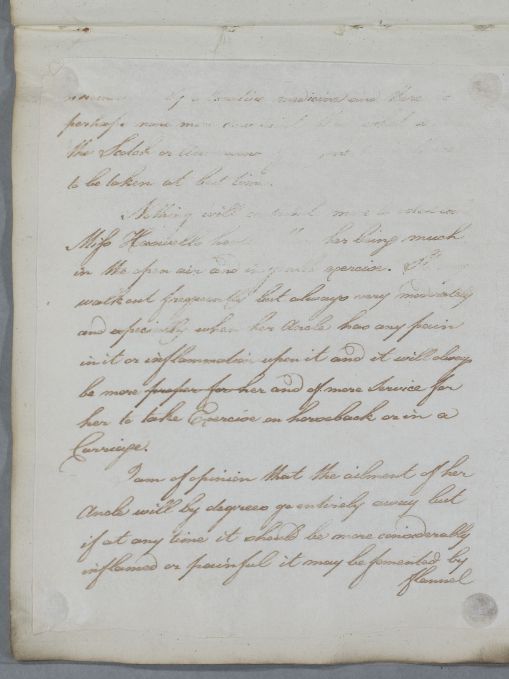 of a laxative medicine and there
perhaps none more
the Scotch or
to be taken at bed time.
Nothing will contribute more to
Miss her being much
in the open air and in gentle exercise.
walk out frequently but always very moderately
and especially when her Ancle has any pain
in it or inflammation upon it and it will always
be more proper for her and of more Service for
her to take Exercise on horseback or in a
Carriage.
I am of opinion that the ailment of her
Ancle will by degrees go entirely away but
if at any time it should be more considerably
inflamed or painful it may be fomented by
flannel